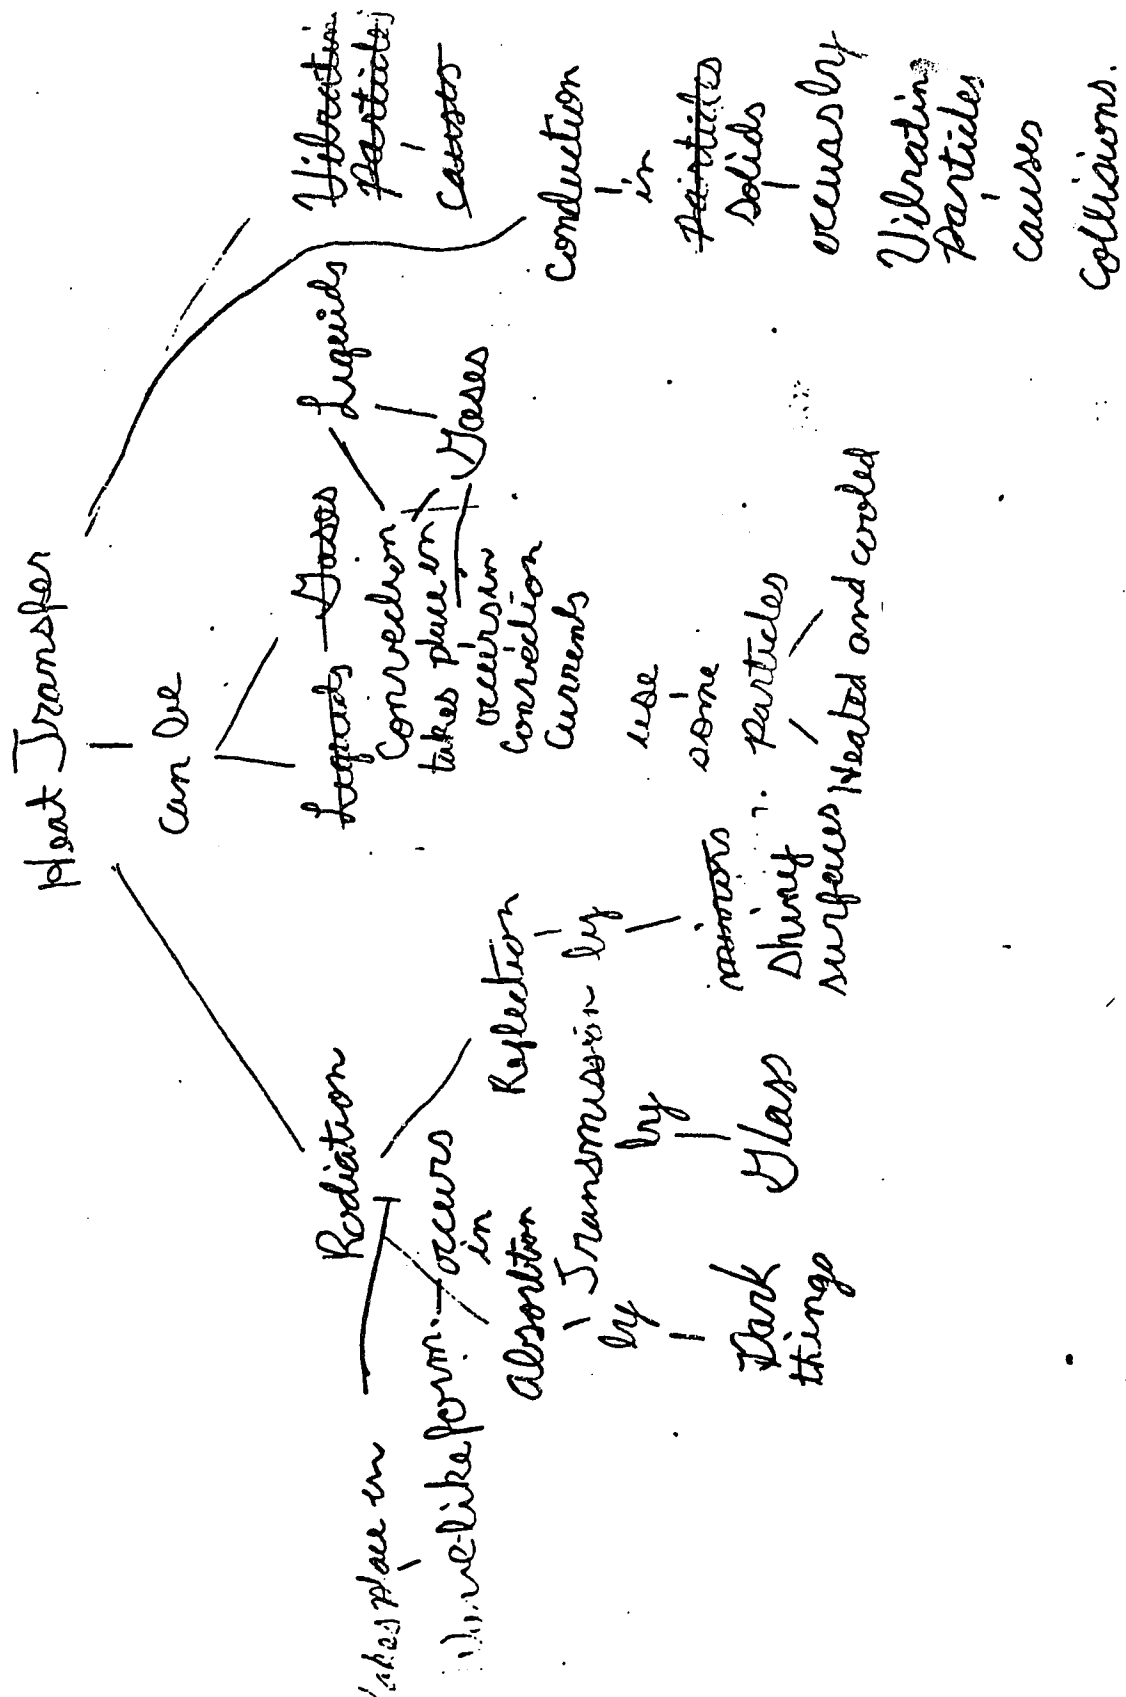 Heat Transfer
can be
Radiation
takes place in
wave-like form.
occurs
in
Absorbtion
by
Dark
things
Transmission
by
Glass
Reflection
by
mirrors
shiny
surfaces
Liquids
Gases
Convection
takes place in
Liquids
Gases
occurs in
convection
currents
use
some
particles
Heated and cooled
Vibratin
particles
causes
Conduction
in
particles
solids
occurs by
Vibratin
particles
causes
collisions.